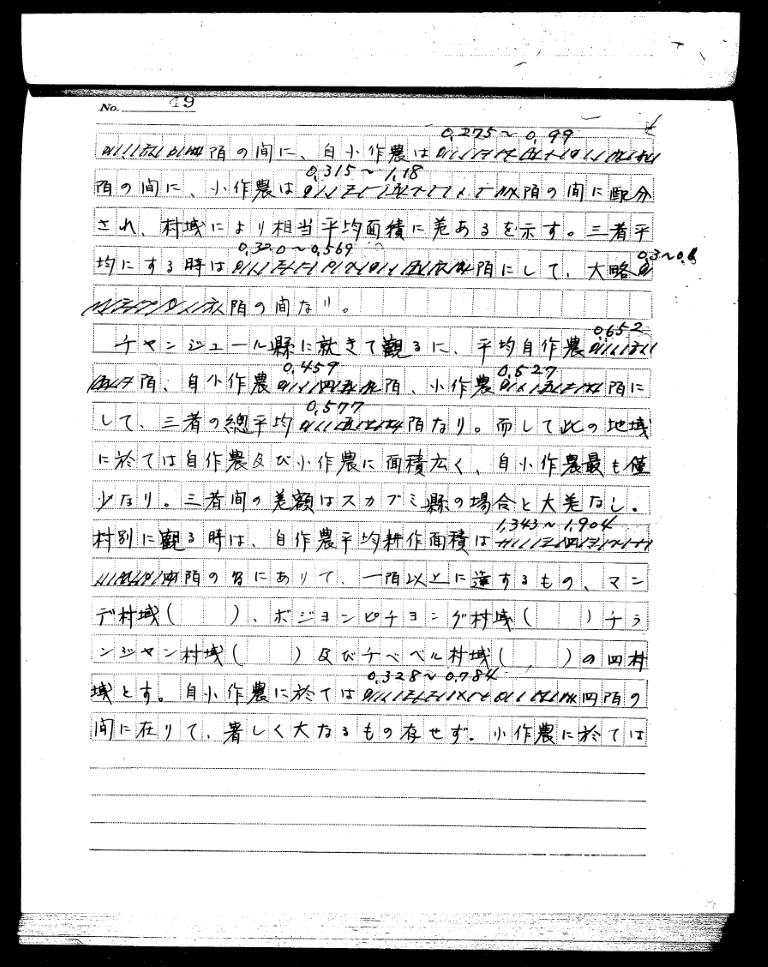 No. 49
0,275～0,99
陌の間に、自小作農は
0,315～1,18
陌の間に、小作農は陌の間に配分
され、村域により相当平均面積に差あるを示す。三者平
0,320～0,569
均にする時は陌にして、大略0,3～0,6
陌の間なり。
チャンジュール縣に就きて観るに、平均自作農0,652
0,459 0,527
陌、自小作農陌、小作農陌に
0,577
して、三者の總平均陌なり。而して此の地域
に於ては自作農及び小作農に面積広く、自小作農最も僅
少なり。三者間の差額はスカブミ縣の場合と大差なし。
1,343～1,904
村別に観る時は、自作農平均耕作面積は
陌の間にありて、一陌以上に達するもの、マン
デ村域(　)、ボジョンピチョング村域(　)チラ
ンジャン村域(　)及びチベベル村域(　)の四村
0,328～0,784
域とす。自小作農に於ては陌の
間に在りて、著しく大なるもの存せず。小作農に於ては